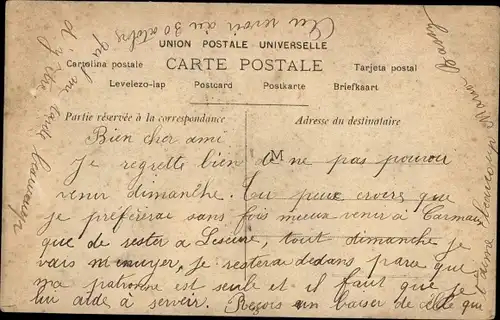 UNION POSTALE UNIVERSELLE
Cartolina postale CARTE POSTALE Tarjeta postal
Levelezo-lap Postcard Postkarte Briefkaart
Partie réservée à la correspondance Adresse du destinataire
Bien cher ami
Je regrette bien de ne pas pouvoir
venir dimanche. Tu peux croire que
je préférerai sans fois mieux venir a Carmaux
que de rester a Lescure, tout dimanche je
vais m'ennuyer, je resterai dedans parce que
ma patronne est seule et il faut que je
lui aide à servir. Reçois un baiser de celle qui
M
Au revoir au 30 octobre